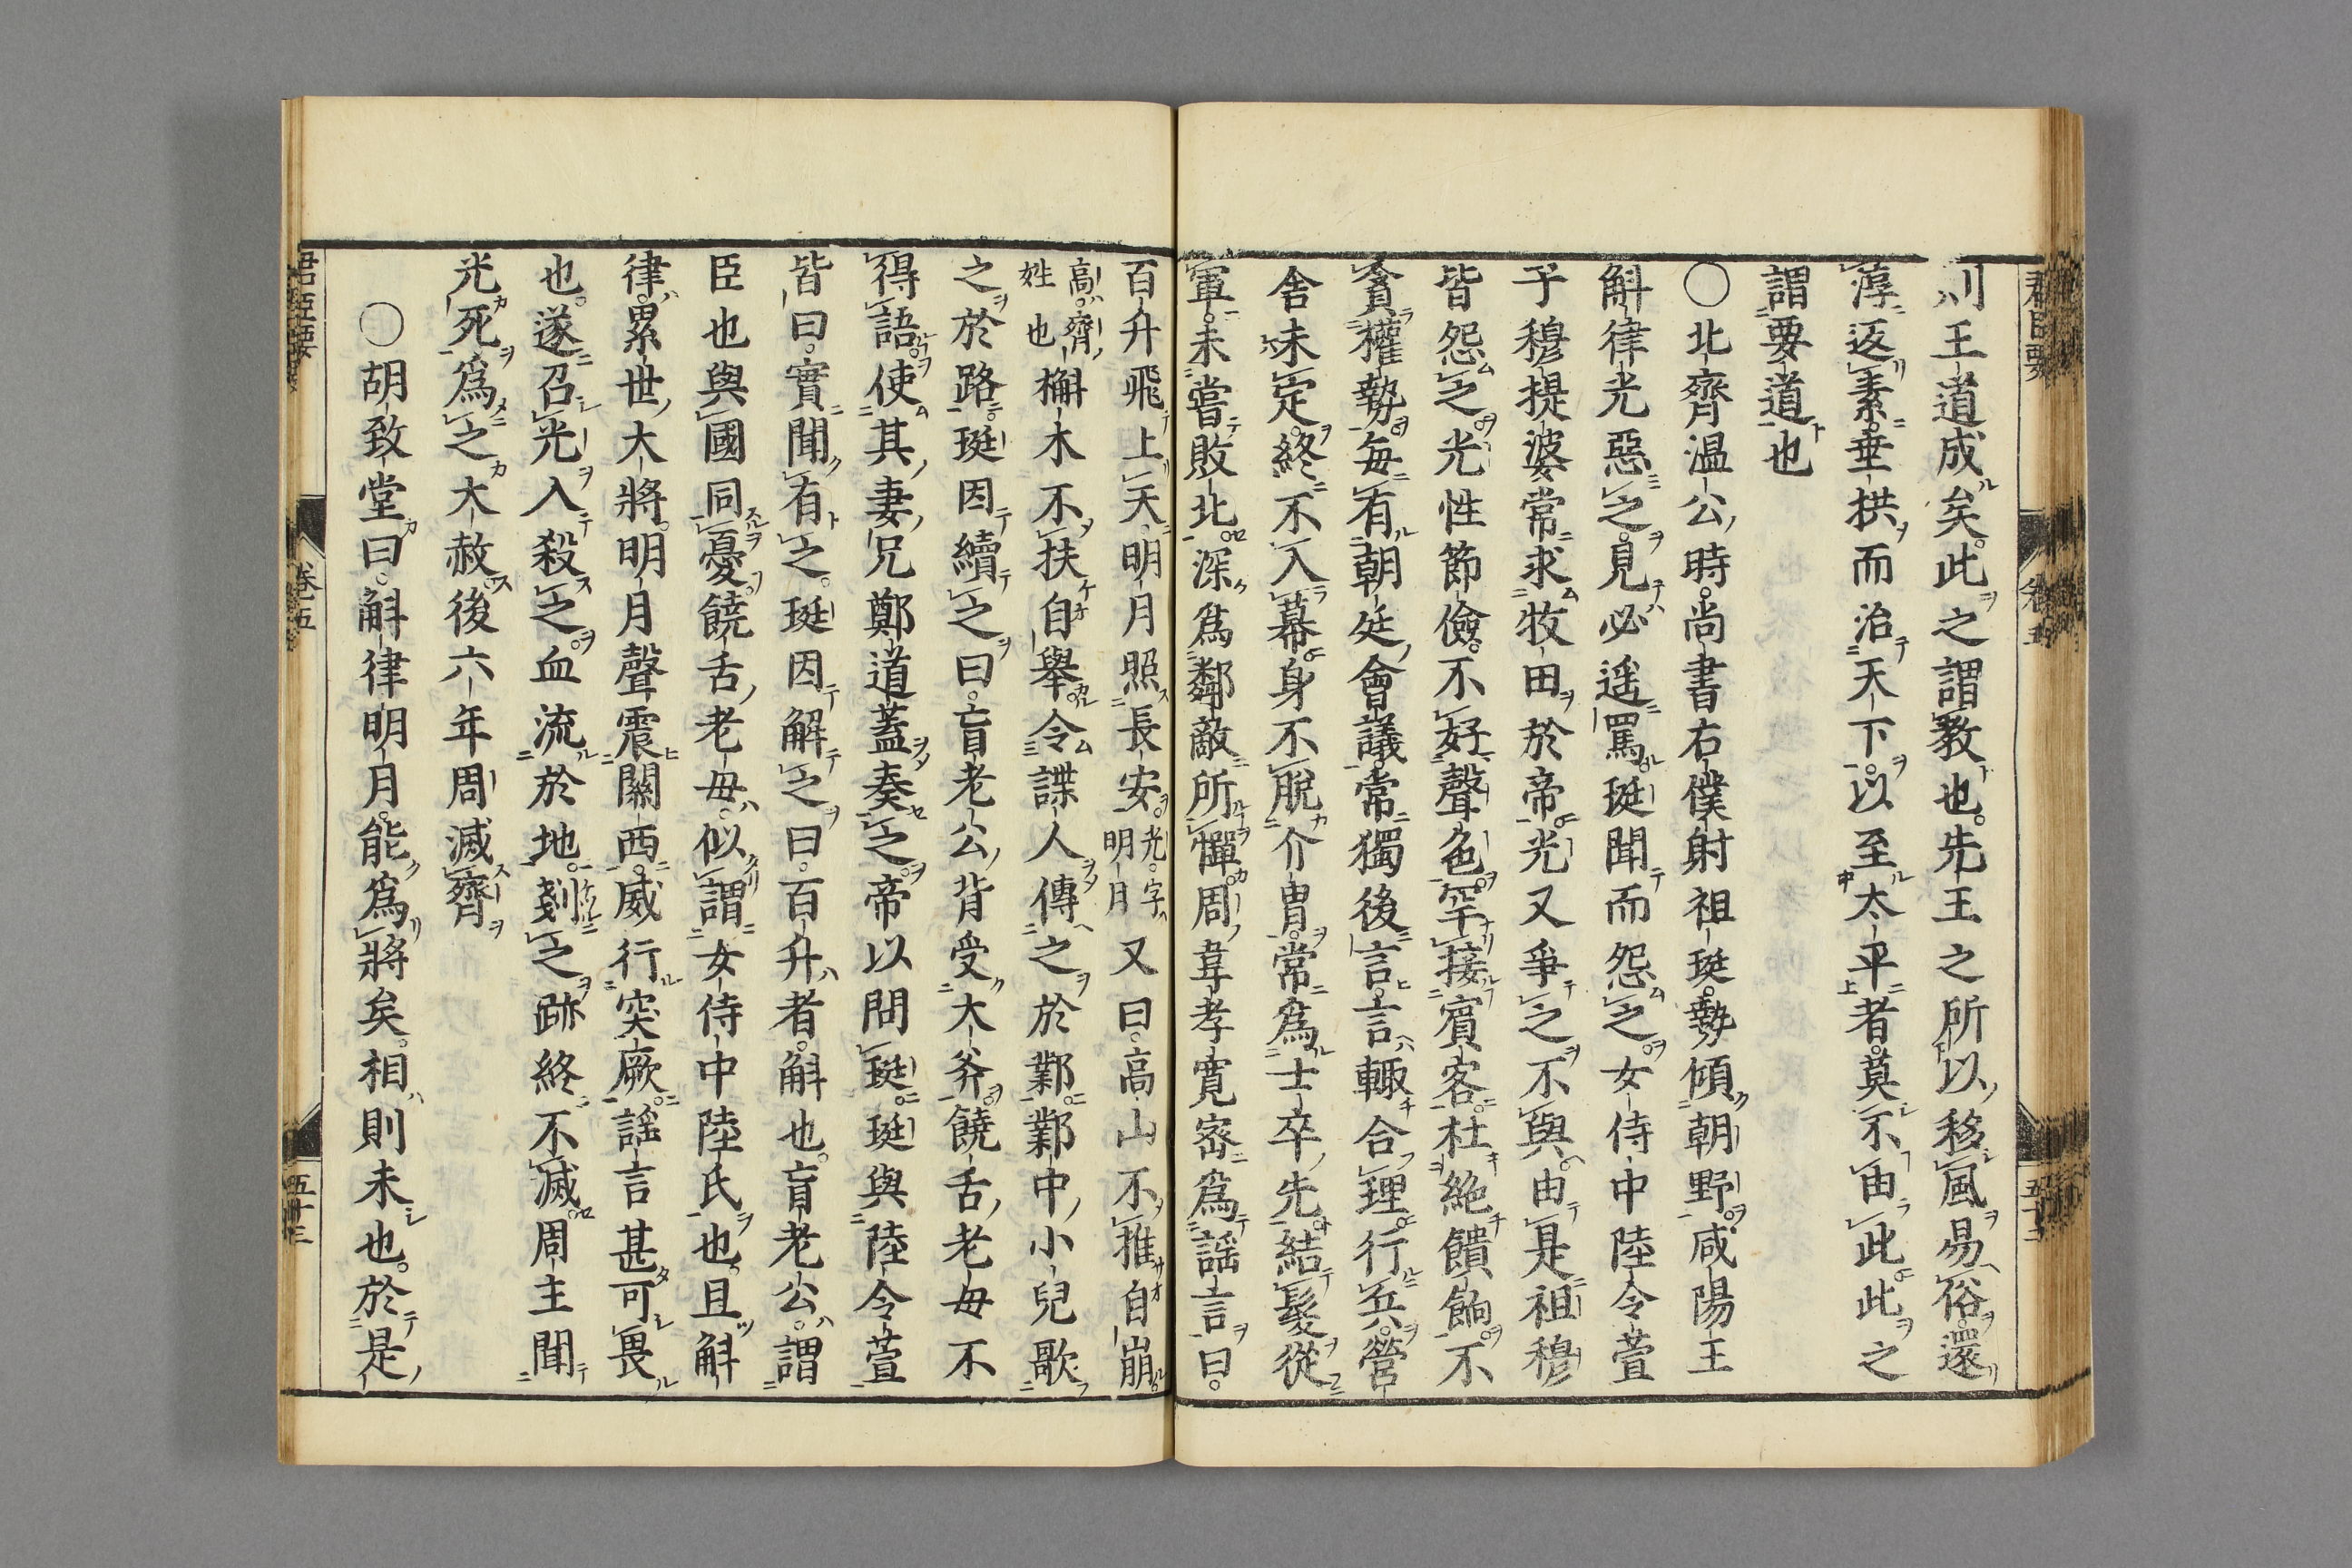 則王道成矣。此之謂教也。先王之所以移風易俗。還
淳返素。垂拱而治天下。以至太平者。莫不由此此之
謂要道也
〇北齊温公時。尚書右僕射祖珽。勢傾朝野。咸陽王
斛律光惡之。見必遥罵珽聞而怨之。女侍中陸令萱
子穆提婆常求牧田於帝。光又爭之不與。由是祖穆
皆怨之。光性節儉。不好聲色。罕接賓客。杜絶饋餉。不
貪權勢。每有朝廷會議。常獨後言。言輙合理。行兵。營
舎未定。終不入幕。身不脱介冑。常爲士卒先。結髮從
軍。未嘗敗北。深爲鄰敵所憚。周韋孝寛密爲謡言曰。
百升飛上天。明月照長安。光。字明月又曰。高山不推自崩。
高。齊姓也槲木不扶自舉。令諜人傳之於鄴。鄴中小兒歌
之於路。珽因續之曰。盲老公背受大斧。饒舌老母不
得語。使其妻兄鄭道蓋奏之。帝以問珽。珽與陸令萱
皆曰。實聞有之。珽因解之曰。百升者。斛也。盲老公。謂
臣也與國同憂。饒舌老母。似謂女侍中陸氏也。且斛
律。累世大將。明月聲震關西。威行突厥。謡言甚可畏
也。遂召光入殺之。血流於地。剗之跡終不滅。周主聞
光死。爲之大赦。後六年周滅齊
〇胡致堂曰。斛律明月。能爲將矣。相則未也。於是
君臣要
卷五
五十三